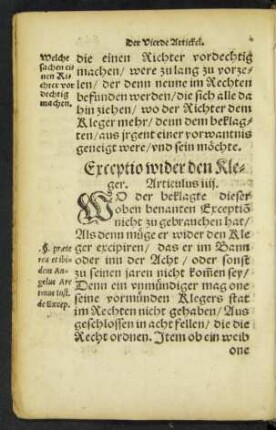 Der Vierde Artickel.
Welche
sachen ei
nen Ri-
chter vor
dechtig
machen.
die einen Richter vordechtig
machen/ were zu lang zu vorze-
len/ der denn neune im Rechten
befunden werden/ die sich alle da
hin ziehen/ wo der Richter dem
Kleger mehr/ denn dem beklag-
ten/ aus jrgent einer vorwantnis
geneigt were/ vnd sein möchte.
Exceptio wider den Kle-
ger. Articulus iiij.
WO der beklagte dieser
oben benanten Exceptiō
nicht zu gebrauchen hat/
Als denn müge er wider den Kle
ger excipiren/ das er im Bann
oder inn der Acht/ oder sonst
zu seinen jaren nicht kom̄en sey/
Denn ein vnmündiger mag one
seine vormünden Klegers stat
im Rechten nicht gehaben/ Aus
geschlossen in acht fellen/ die die
Recht ordnen. Item ob ein weib
one
§. præte
rea et ibi-
dem An-
gelus Are
tinus Inst.
de Excep.